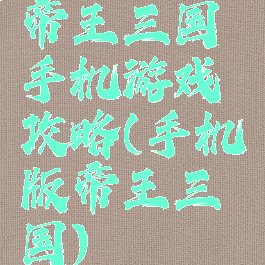 帝王三国
手机游戏
攻略(手机
版帝王三
国)